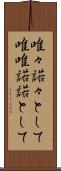 唯々諾々として
唯唯諾諾として